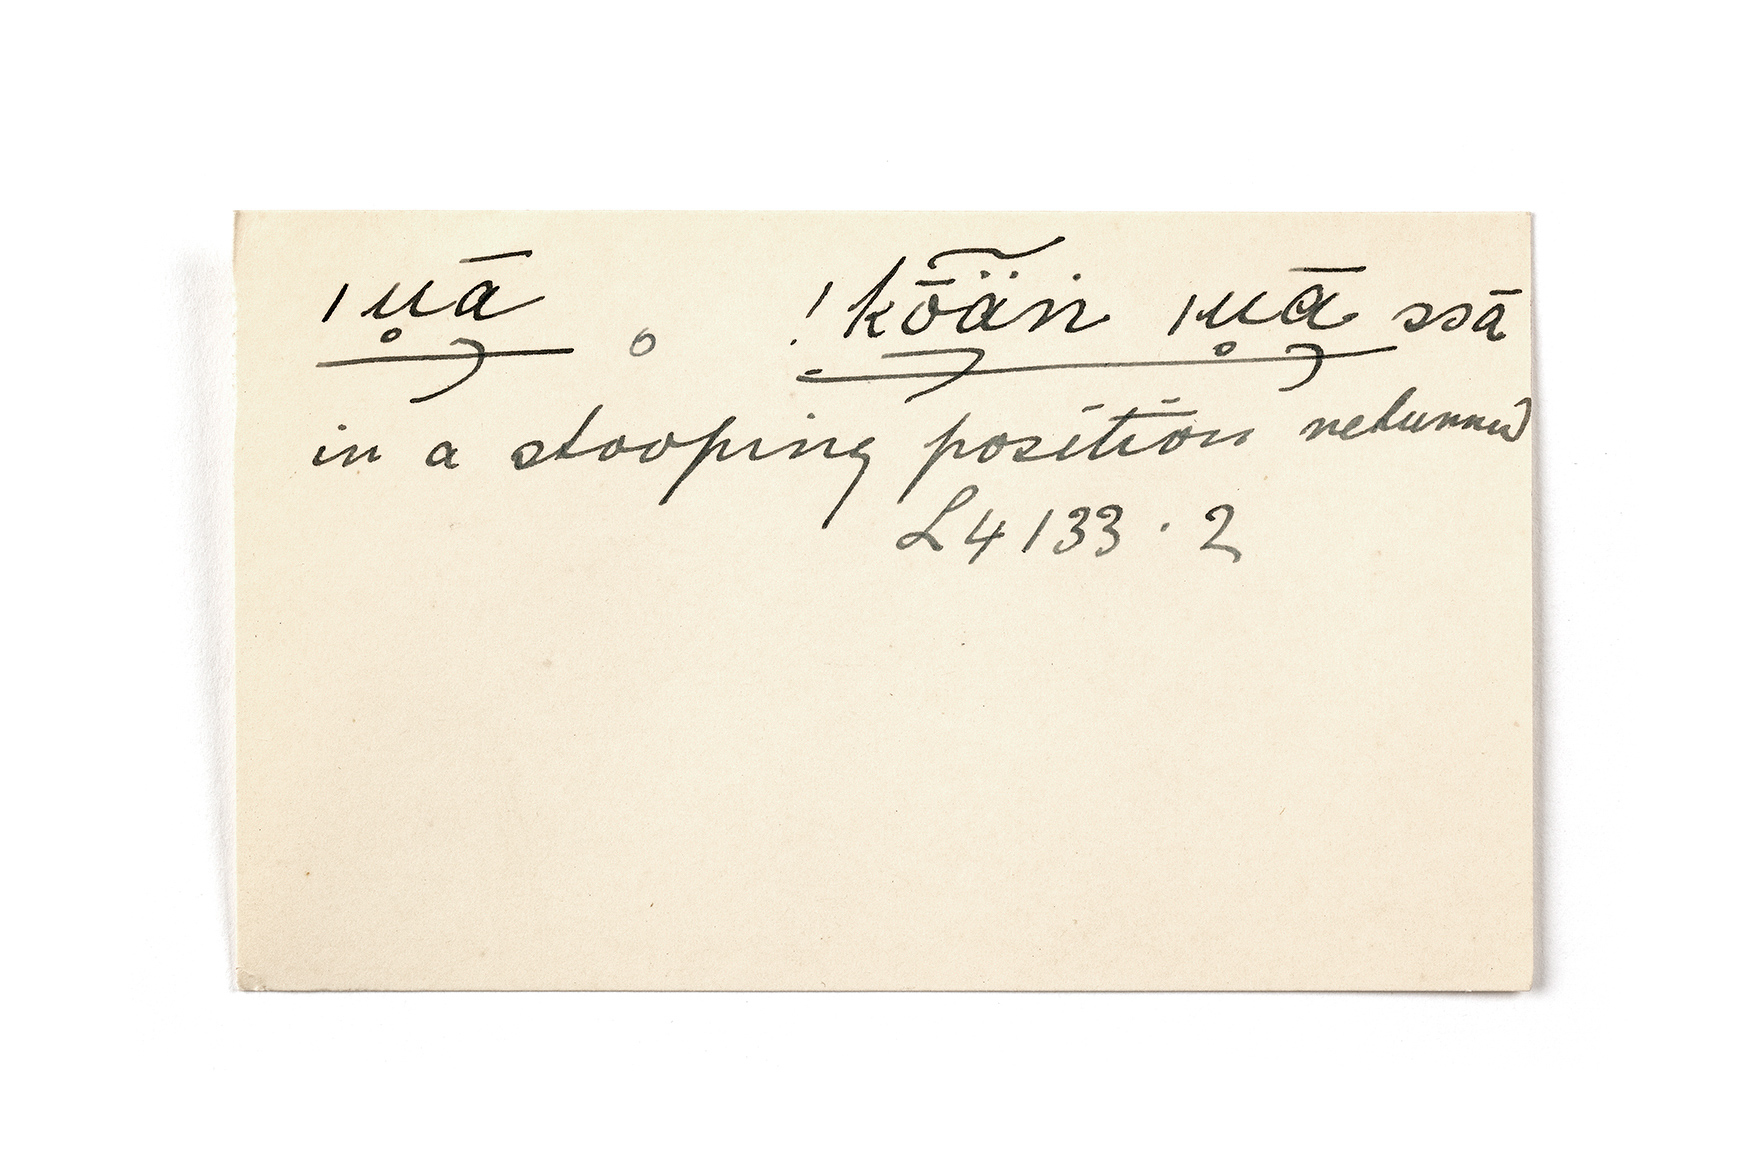 ǀu̥ā o !kȭä̃n ǀu̥ā ssā
in a stooping position returned
L4133 · 2